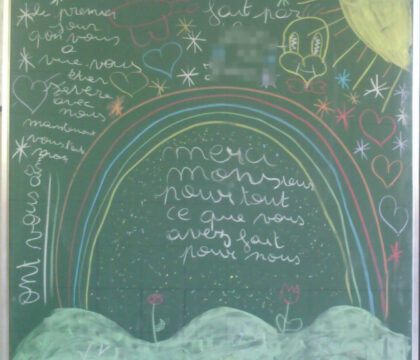 le premier
jour
qu'on vous
a
vue vous
étier
sévère
avec
nous
maintenant
vous
fait par
merci
monsieur
pour tout
ce que vous
avez fait
pour nous
ont vous a